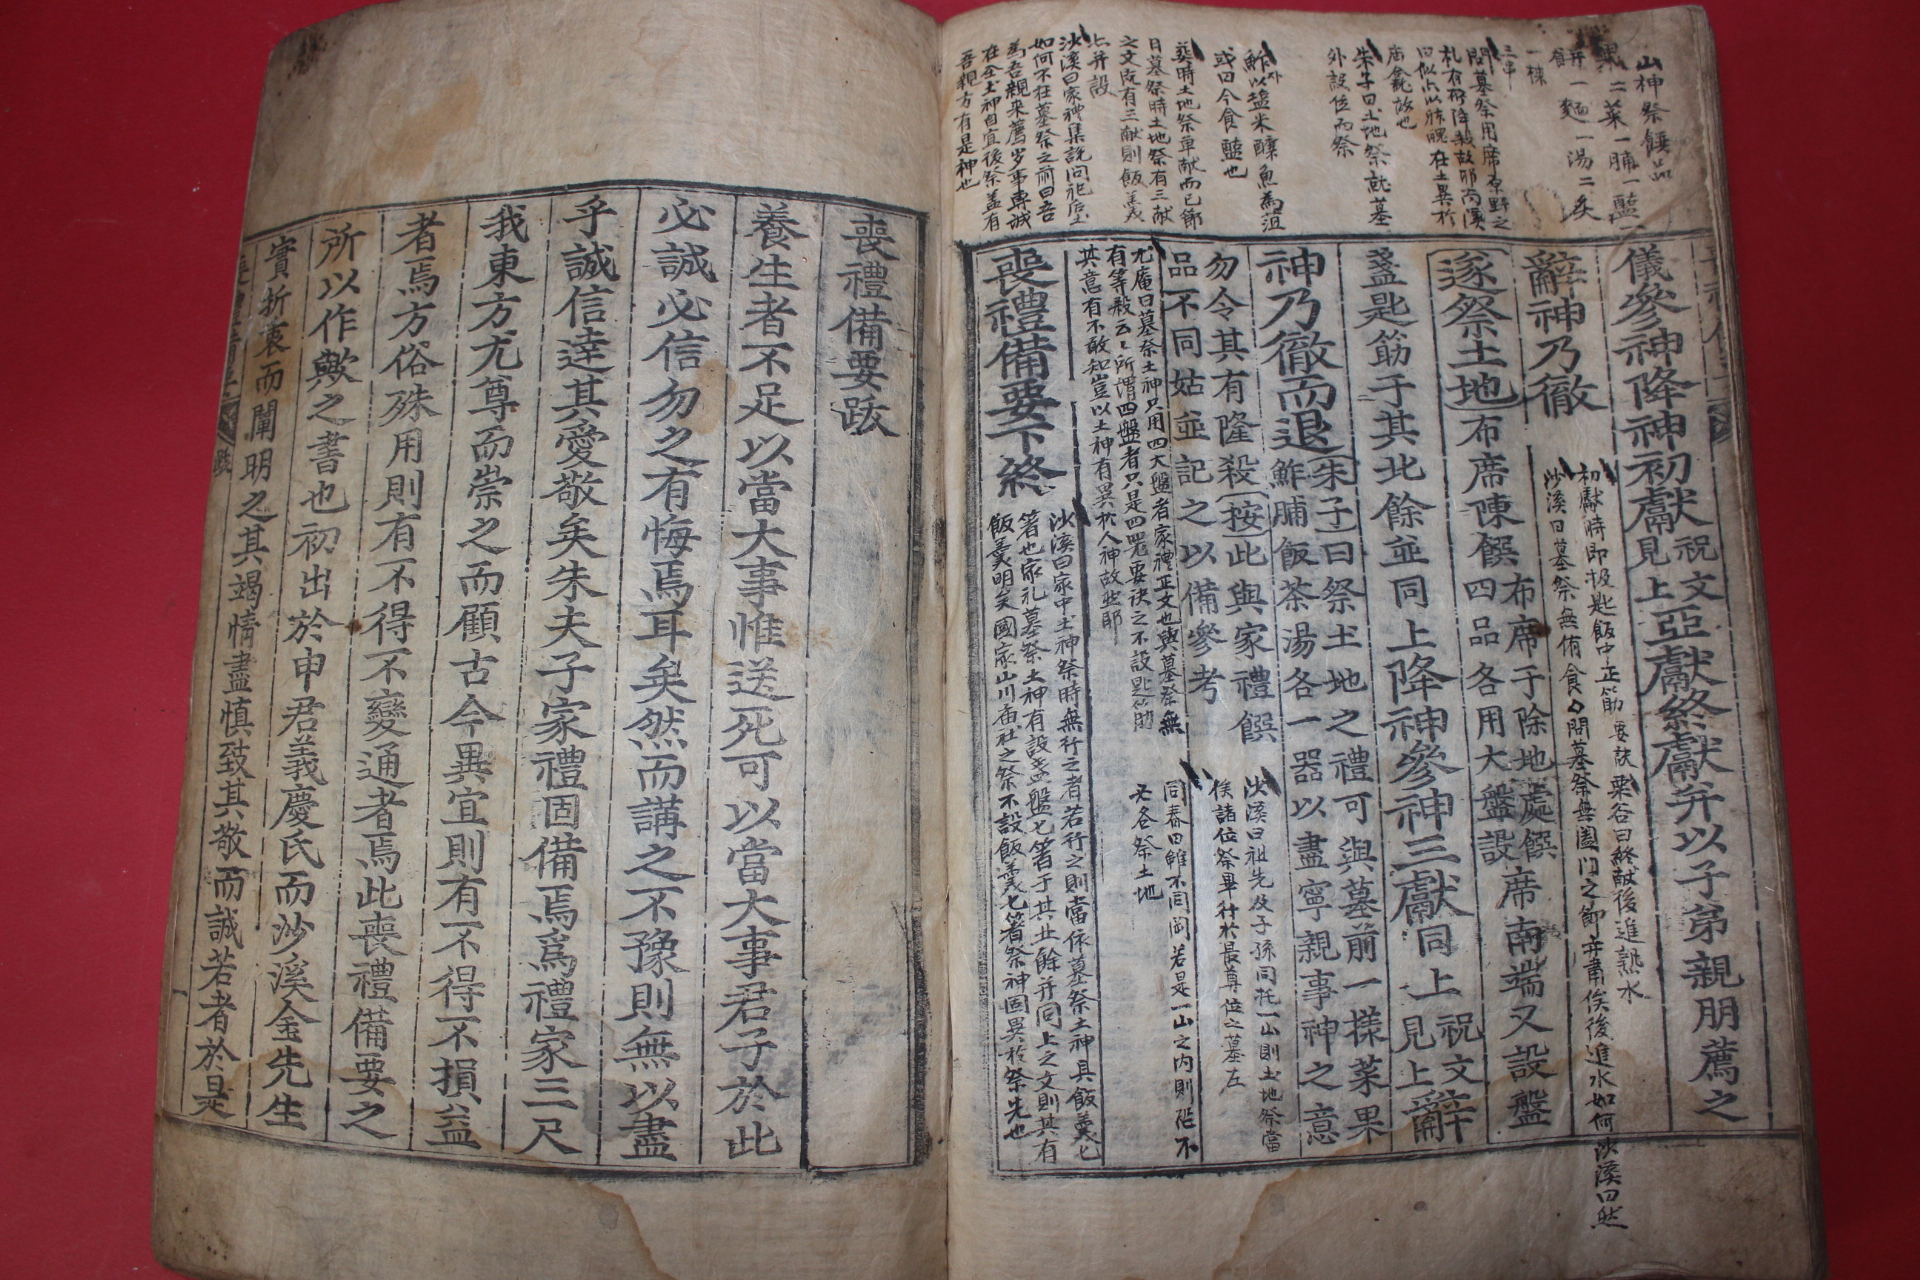 山神祭饌品
果二菜一脯一醢一
餠一麵一湯二炙
一楪
三串
朱子曰土地祭就墓
外設位而祭
鮓以鹽米釀魚爲菹
或曰今食醢也
葬時土地祭單献而已節
日墓祭時土地祭有三献
之文旣有三献則飯羹
亦并設
沙溪曰家禮集說問祀后土
如何不在墓祭之前曰吾
爲吾親來薦岁事專誠
在念土神自宜後祭盖有
吾親方有是神也
儀參神降神初獻祝文見上亞獻終獻并以子弟親朋薦之
初獻時即扱匙飯中正筯要訣栗谷曰終献後進熟水
沙溪曰墓祭無侑食
問墓祭無闔门之節并肅俟後進水如何沙溪曰然
辭神乃徹
遂祭土地布席陳饌四品各用大盤設席南端又設盤
布席于除地處饌
盞匙筯于其北餘並同上降神參神三獻同上祝文見上辭
神乃徹而退朱子曰祭土地之禮可與墓前一樣菜果
鮓脯飯茶湯各一器以盡寧親事神之意
勿令其有隆殺按此與家禮饌
品不同姑並記之以備參考
沙溪曰祖先及子孫同托一山則土地祭當
俟諸位祭畢行於最尊位之墓左
同春曰雖不同岡若是一山之内則恐不
必各祭土地
尤庵曰墓祭土神只用四大盤者家禮正文也與墓祭無
有等殺云云所謂四盤者只是四器要訣之不設匙筯
其意有不敢知豈以土神有異於人神故然耶
喪禮備要下終
沙溪曰家中土神祭時無行之者若行之則當依墓祭土神具飯羹匕
箸也家礼墓祭土神有設盞盤匕箸于其北餘并同上之文則其有
飯羹明矣國家山川庙社之祭不設飯羹匕箸祭神固異於祭先也
喪禮備要跋
養生者不足以當大事惟送死可以當大事君子於此
必誠必信勿之有悔焉耳矣然而講之不豫則無以盡
乎誠信達其愛敬矣朱夫子家禮固備焉爲禮家三尺
我東方尤尊而崇之而顧古今異宜則有不得不損益
者焉方俗殊用則有不得不變通者焉此喪禮備要之
所以作歟之書也初出於申君義慶氏而沙溪金先生
實折衷而闡明之其竭情盡愼致其敬而誠若者於是